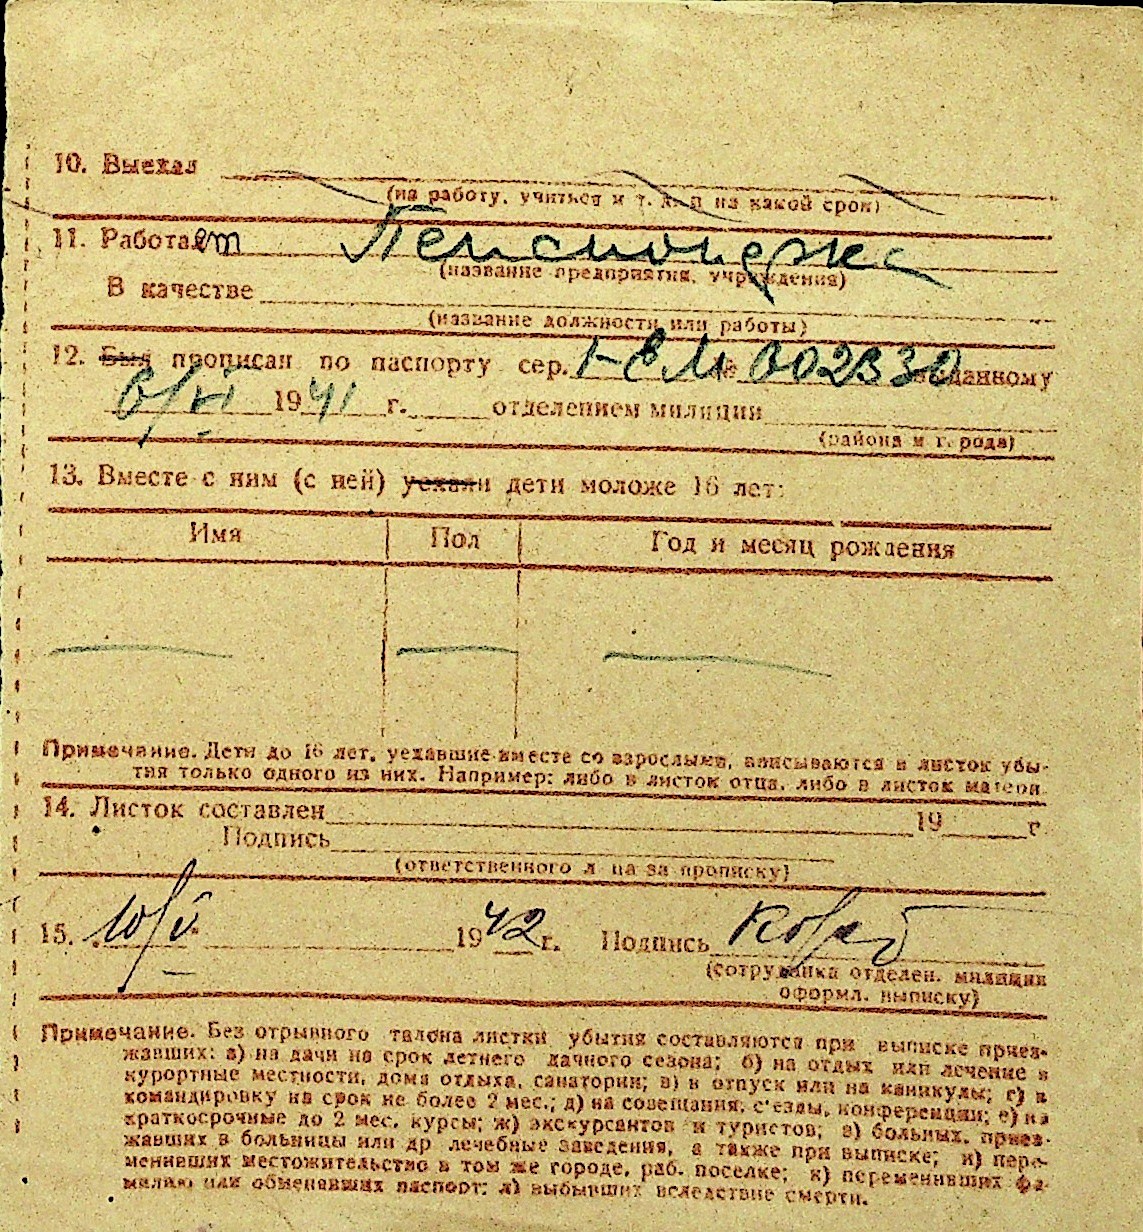 10. Выехал
(на работу, учиться и т. д. и на какой срок)
11. Работает Пенсионерка
(название предприятия, учреждения)
В качестве
(название должности или работы)
12. Был прописан по паспорту сер. № 002330 выданному
6/ 1941 г. отделением милиции
(района и города)
13. Вместе с ним (с ней) уехали дети моложе 16 лет:
Имя Пол Год и месяц рождения
Примечание. Дети до 16 лет, уехавшие вместе со взрослыми, вписываются в листок убы-
тия только одного из них. Например: либо в листок отца, либо в листок матери.
14. Листок составлен 19 г
Подпись
(ответственного лица за прописку)
15. 10/V 1942 г. Подпись
(сотрудника отделен. милиции
оформл. выписку)
Примечание. Без отрывного талона листки убытия составляются при выписке приез-
жавших: а) на дачи на срок летнего дачного сезона; б) на отдых или лечение в
курортные местности, дома отдыха, санатории; в) в отпуск или на каникулы; г) в
командировку на срок не более 2 мес.; д) на совещания, с'езды, конференции; е) на
краткосрочные до 2 мес. курсы; ж) экскурсантов и туристов; з) больных, приез-
жавших в больницы или др лечебные заведения, а также при выписке; и) пере-
менивших местожительство в том же городе, раб. поселке; к) переменивших фа-
милию или обменявших паспорт; л) выбывших вследствие смерти.